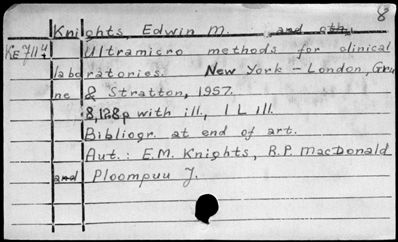 8
Knights, Edwin M. and oth.
KE 7114 Ultramicro methods for clinical
laboratories. New York - London, Gru
ne & Stratton, 1957.
8,128p with ill., 1 L ill.
Bibliogr. at end of art.
Aut.: E.M. Knights, R.P. MacDonald
and Ploompuu J.